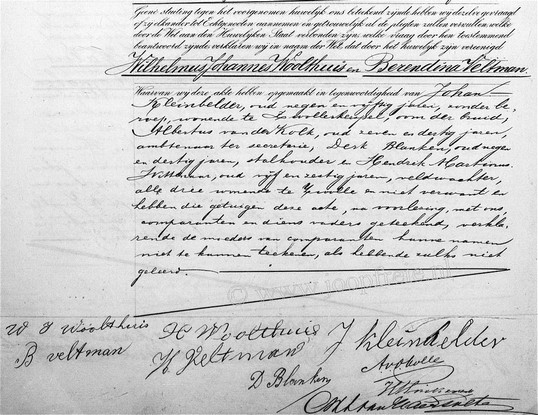 Geene stuiting tegen het voorgenomen huwelijk ons bekend zynde hebben wy dezelve gevraagd
of zy elkander tot Echtgenooten aannemen en getrouwelyk al de pligten zullen vervullen, welke
door de Wet aan den Huwelyken Staat verbonden zyn; welke vraag door hen toestemmend
beantwoord zynde verklaren wy in naam der Wet dat door het huwelyk zyn vereenigd
Wilhelmus Johannes Woolthuis en Berendina Veltman.
Waarvan wy deze akte hebben opgemaakt in tegenwoordigheid van Johan
Kleinhelder, oud negen en vyftig jaren, zonder be,
roep, wonende te Zwollerkerspel, oom der bruid,
Albertus van der Kolk, oud zeven en dertig jaren,
ambtenaar ter secretarie, Derk Blanken, oud negen
en dertig jaren, stalhouder en Hendrik
oud vyf en zestig jaren, veldwachter,
alle drie wonende te Zwolle en niet verwant en
hebben die getuigen deze acte, na voorlezing, met ons
comparanten en diens vaders geteekend, verkla,
rende de moeders van comparanten hunne namen
niet te kunnen teekenen, als hebbende zulks niet
geleerd.
© www.jooplrale.nl
W J Woolthuis H Woolthuis J Kleinhelder
B veltman H Veltman
D Blanken